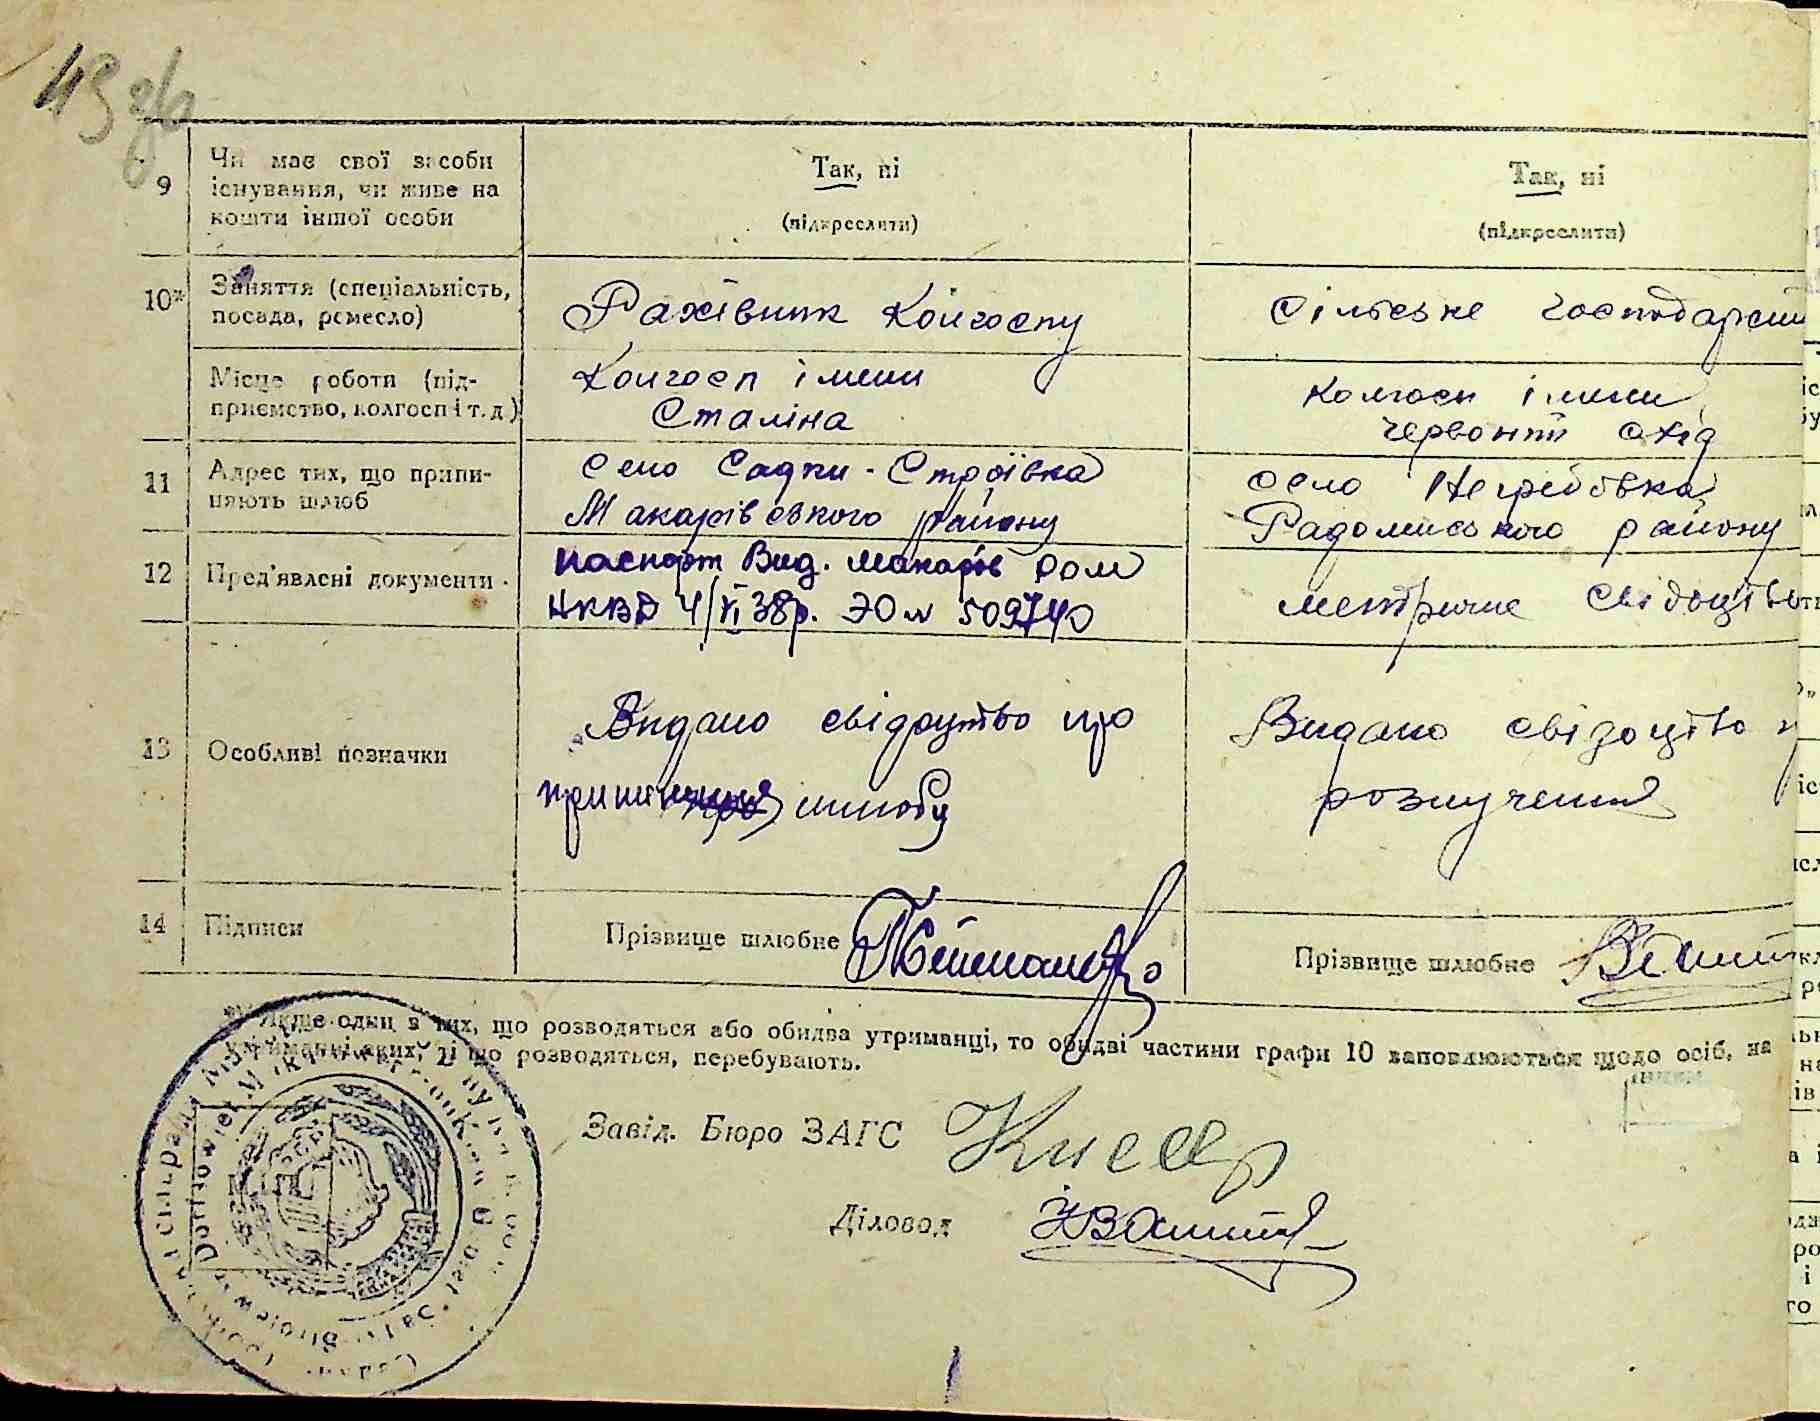 43 зв
9 Чи має свої засоби існування, чи живе на кошти іншої особи
Так, ні
(підкреслити)
Так, ні
(підкреслити)
10* Заняття (спеціальність, посада, ремесло)
Рахівник Колгоспу
Сільське господарський
Місце роботи (підприємство, колгосп і т. д.)
Колгосп імени
Сталіна
Колгосп імени
Червоний схід
11 Адрес тих, що припиняють шлюб
Село Садки-Строївка
Макарівського району
село Негребовка
Радомиського району
12 Пред'явлені документи
паспорт Вид. Макарів РОМ
НКВД 4/VI 38р. ЭО № 509740
метричне свідоцтво
13 Особливі позначки
Видано свідоцтво про
шлюбу
Видано свідоцтво п
розлучення
14 Підписи
Прізвище шлюбне
Прізвище шлюбне
Якщо один з тих, що розводяться або обидва утриманці, то обидві частини графи 10 заповнюються щодо осіб, на
утриманні яких, ті що розводяться, перебувають.
Завід. Бюро ЗАГС
Діловод